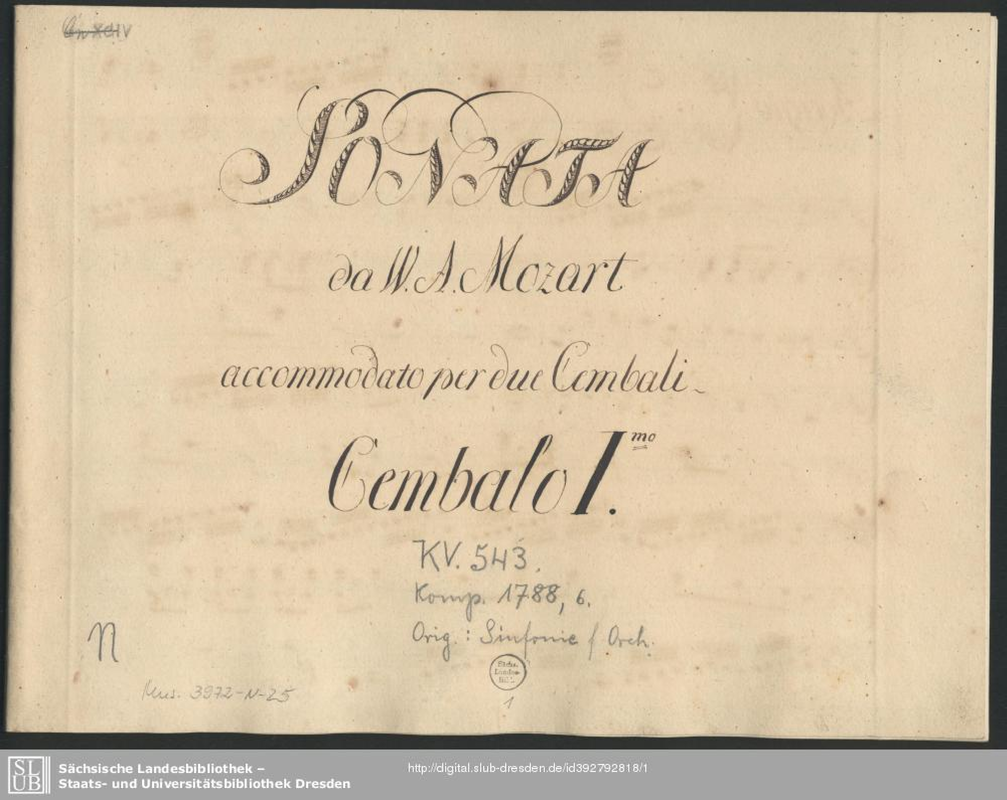 SONATA
da W. A. Mozart
accommodato per due Cembali
Cembalo I.mo
KV. 543.
Komp. 1788, 6.
Orig.: Sinfonie f. Orch.
n
Mus. 3972-N-25
1
SLUB
Sächsische Landesbibliothek –
Staats- und Universitätsbibliothek Dresden
http://digital.slub-dresden.de/id392792818/1